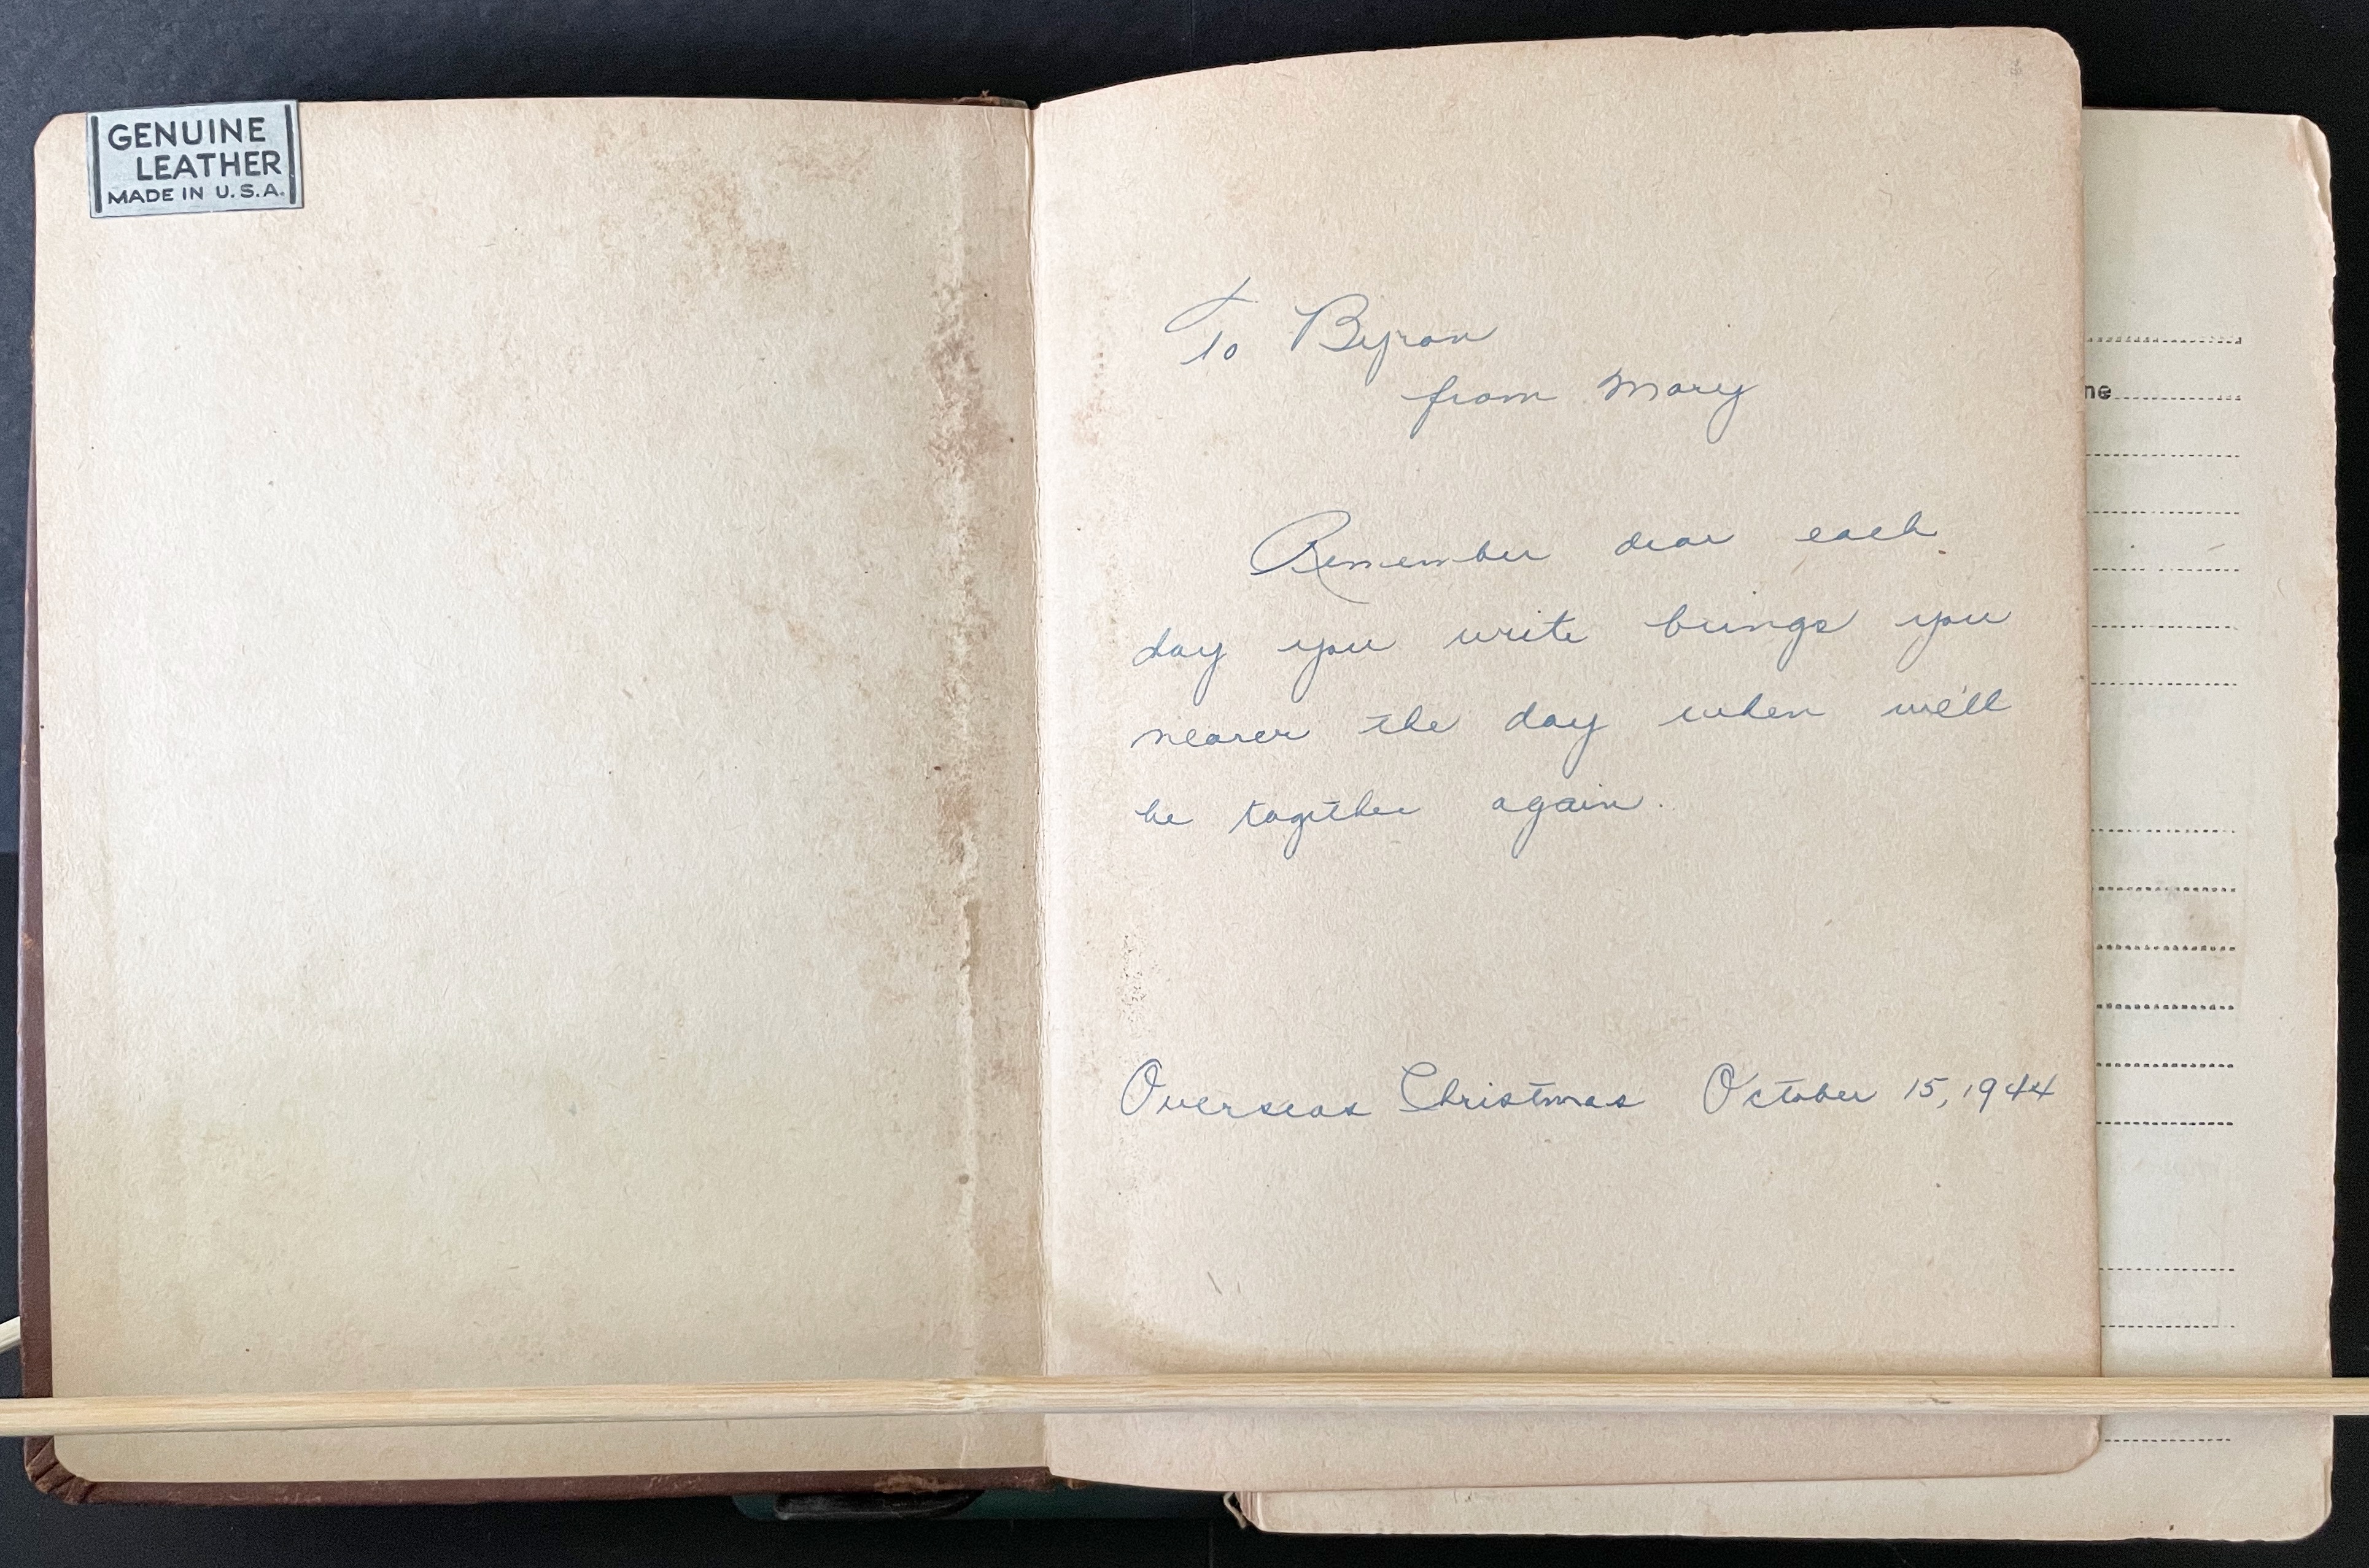 GENUINE
LEATHER
MADE IN U.S.A.
To Byron
from Mary
Remember dear each
day you write brings you
nearer the day when we'll
be together again.
Overseas Christmas October 15, 1944
ne